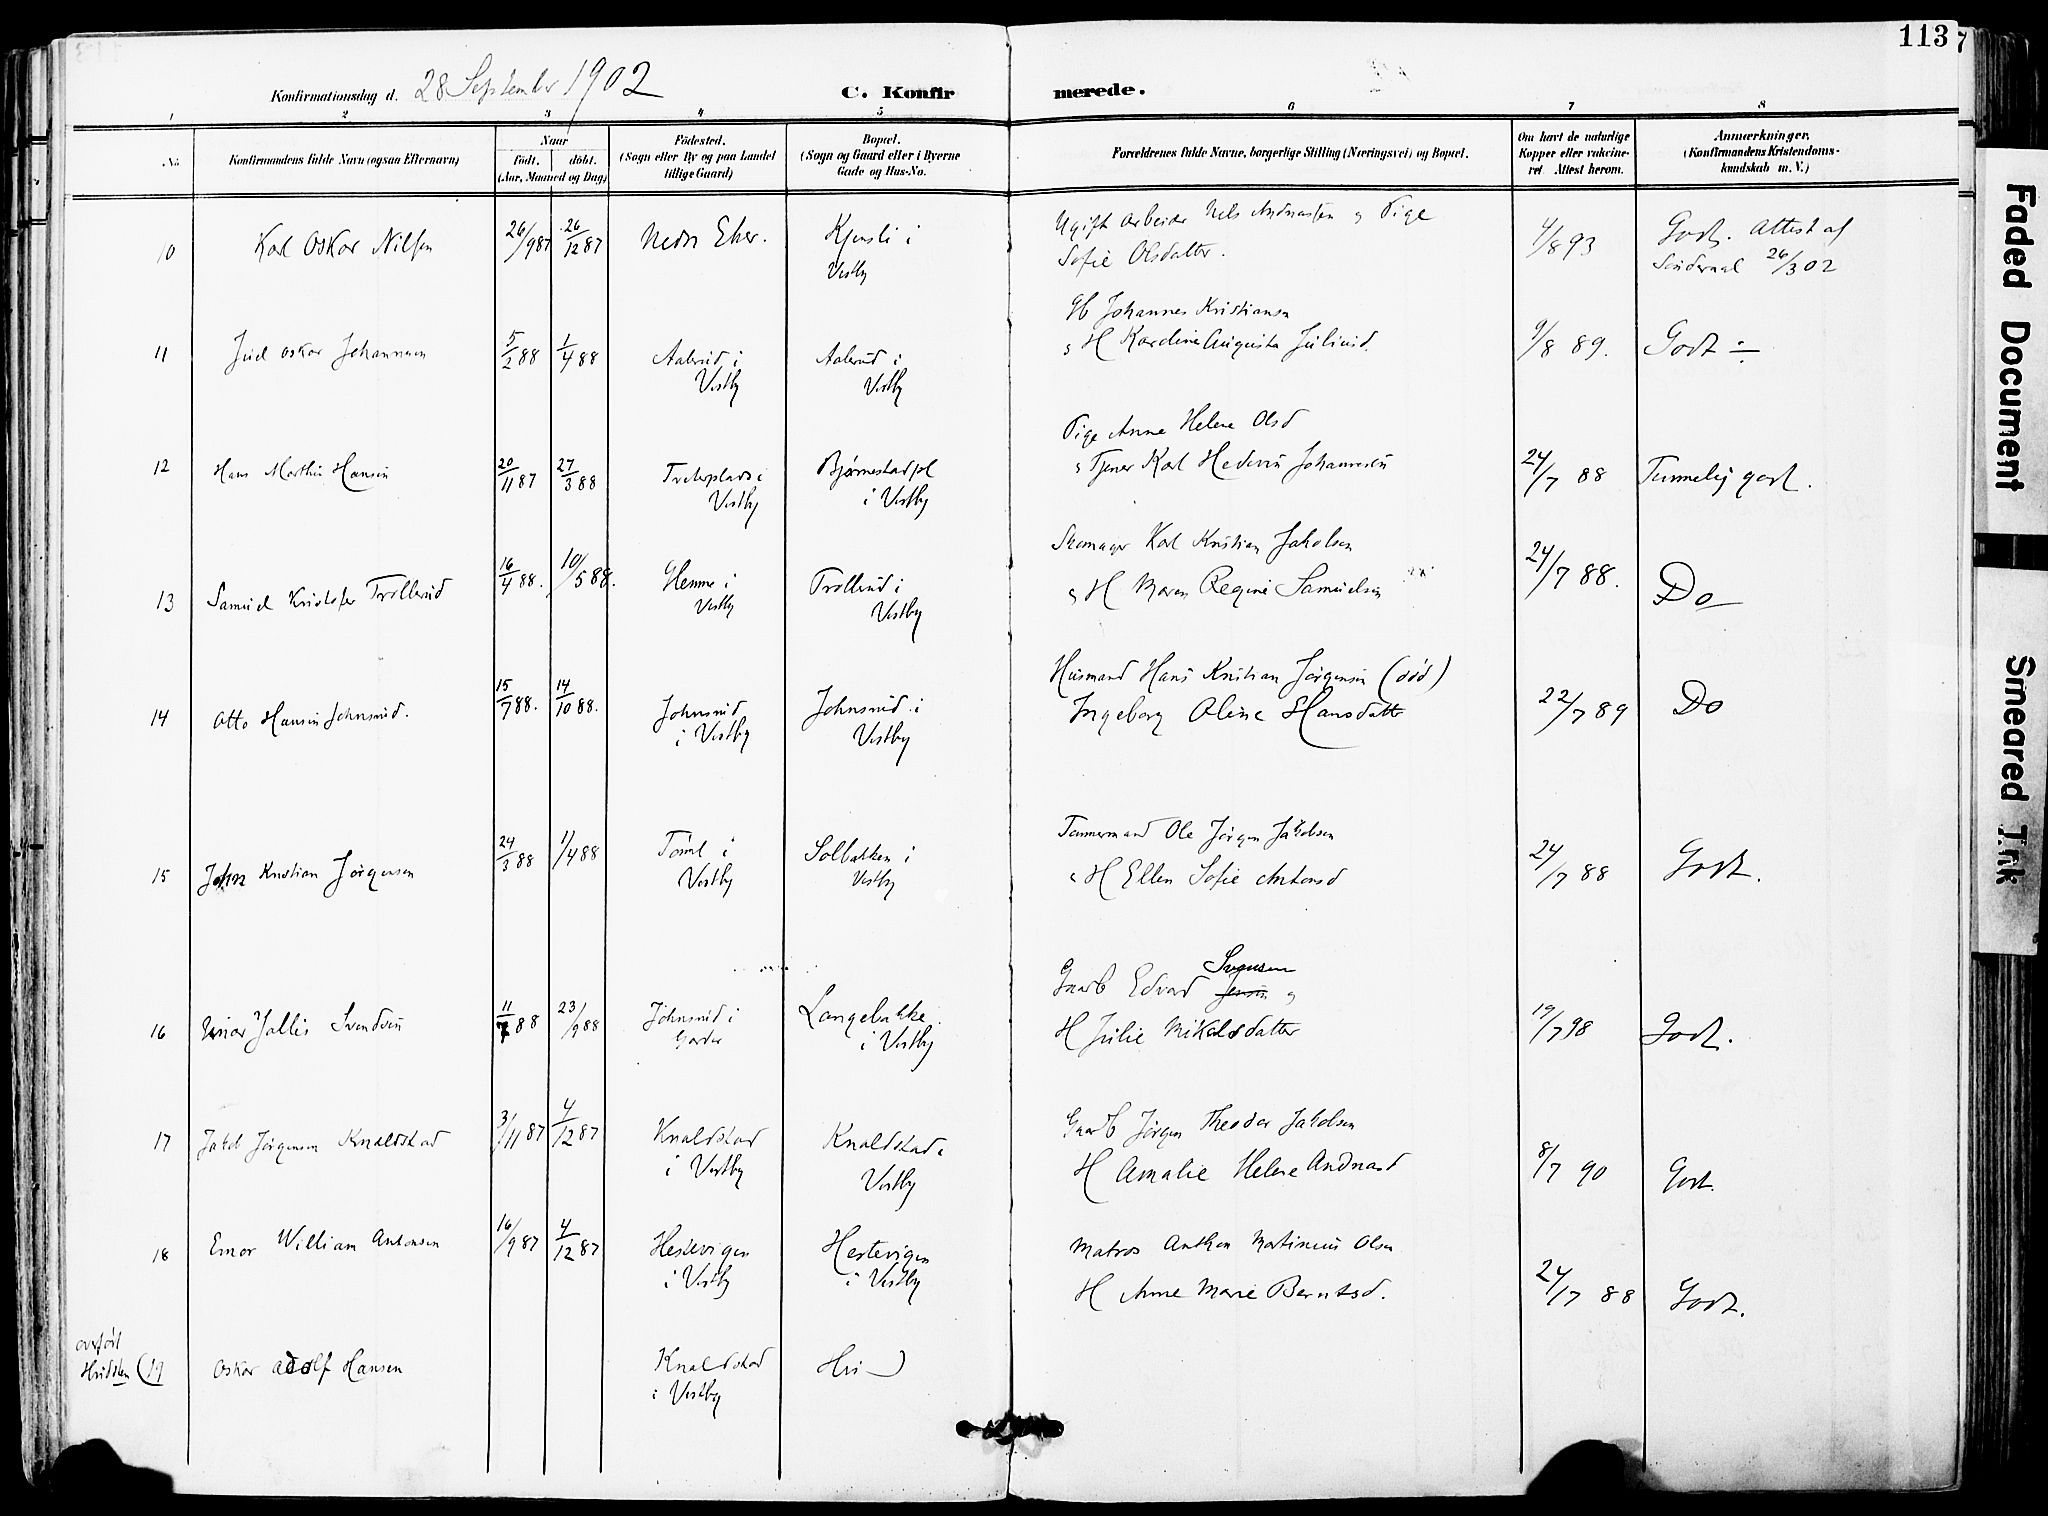 113
Konfirmationsdag d. 28 September 1902
C. Konfirmerede.
1 2 3 4 5 6 7 8
No.
Konfirmandens fulde Navn (ogsaa Efternavn)
Naar
födt. döbt.
(Aar, Maaned og Dag)
Födested.
(Sogn eller By og paa Landet
tillige Gaard)
Bopæl.
(Sogn og Gaard eller i Byerne
Gade og Hus-No.
Forældrenes fulde Navne, borgerlige Stilling (Næringsvei) og Bopæl.
Om havt de naturlige
Kopper eller vakcine-
ret. Attest herom.
Anmærkninger,
(Konfirmandens Kristendoms-
kundskab m. V.)
10 Karl Oskar Nilsen 26/9 87 26/12 87 Nedre Eker. Kjensli i
Vestby
Ugift Arbeider Nels Andreasen og Pige
Sofie Olsdatter.
4/8 93
Godt. Attest af
26/3 02
11 Juel Oskar Johannesen 5/2 88 1/4 88 Aalerud i
Vestby
Aalerud i
Vestby
Gb Johannes Kristiansen
og H Karoline Augusta Juliusd.
9/8 89. Godt ÷
12 Hans Marthin Hansen 20/11 87 27/3 88
Vestby
Bjørnestadpl
i Vestby
Pige Anne Helene Olsd
og Tjener Karl Hedevin Johannesen
24/7 88 Temmelig godt.
13 Samuel Kristofer Trollerud 16/4 88. 10/5 88. Hemme i
Vestby
Trollerud i
Vestby
Skomager Karl Kristian Jakobsen
og H Maren Regine Samuelsen
24/7 88. Do
14 Otto Hansen Johnsrud. 15/7 88. 14/10 88. Johnsrud
i Vestby
Johnsrud i
Vestby
Husmand Hans Kristian Jørgensen (død)
Ingeborg Oline Hansdatter
22/7 89 Do
15 John Kristian Jørgensen 24/3 88 1/4 88
Vestby
Solbakken i
Vestby
Tømmermand Ole Jørgen Jakobsen
og H Ellen Sofie Antonsd
24/7 88 Godt.
16 Einar Jallis Svendsen 11/7 88 23/9 88 Johnsrud i
Garder
Langebakke
i Vestby
Gaardb Edvard Jensen Svensen og
H Julie Mikelsdatter
19/7 98 Godt.
17 Jakob Jørgensen Knaldstad 3/11 87 4/12 87 Knaldstad
i Vestby
Knaldstad i
Vestby
Gaardb Jørgen Theodor Jakobsen
H Amalie Helene Andreasd
8/7 90 Godt.
18 Einar William Antonsen 16/9 87 4/12 87 Hestevigen
i Vestby
Hestevigen
i Vestby
Matros Anthon Martinius Olsen
H Anne Marie Berntsd.
24/7 88 Godt.
overført
Hvidsten (19 Oskar Adolf Hansen Knaldstad
i Vestby
Faded Document
Smeared Ink